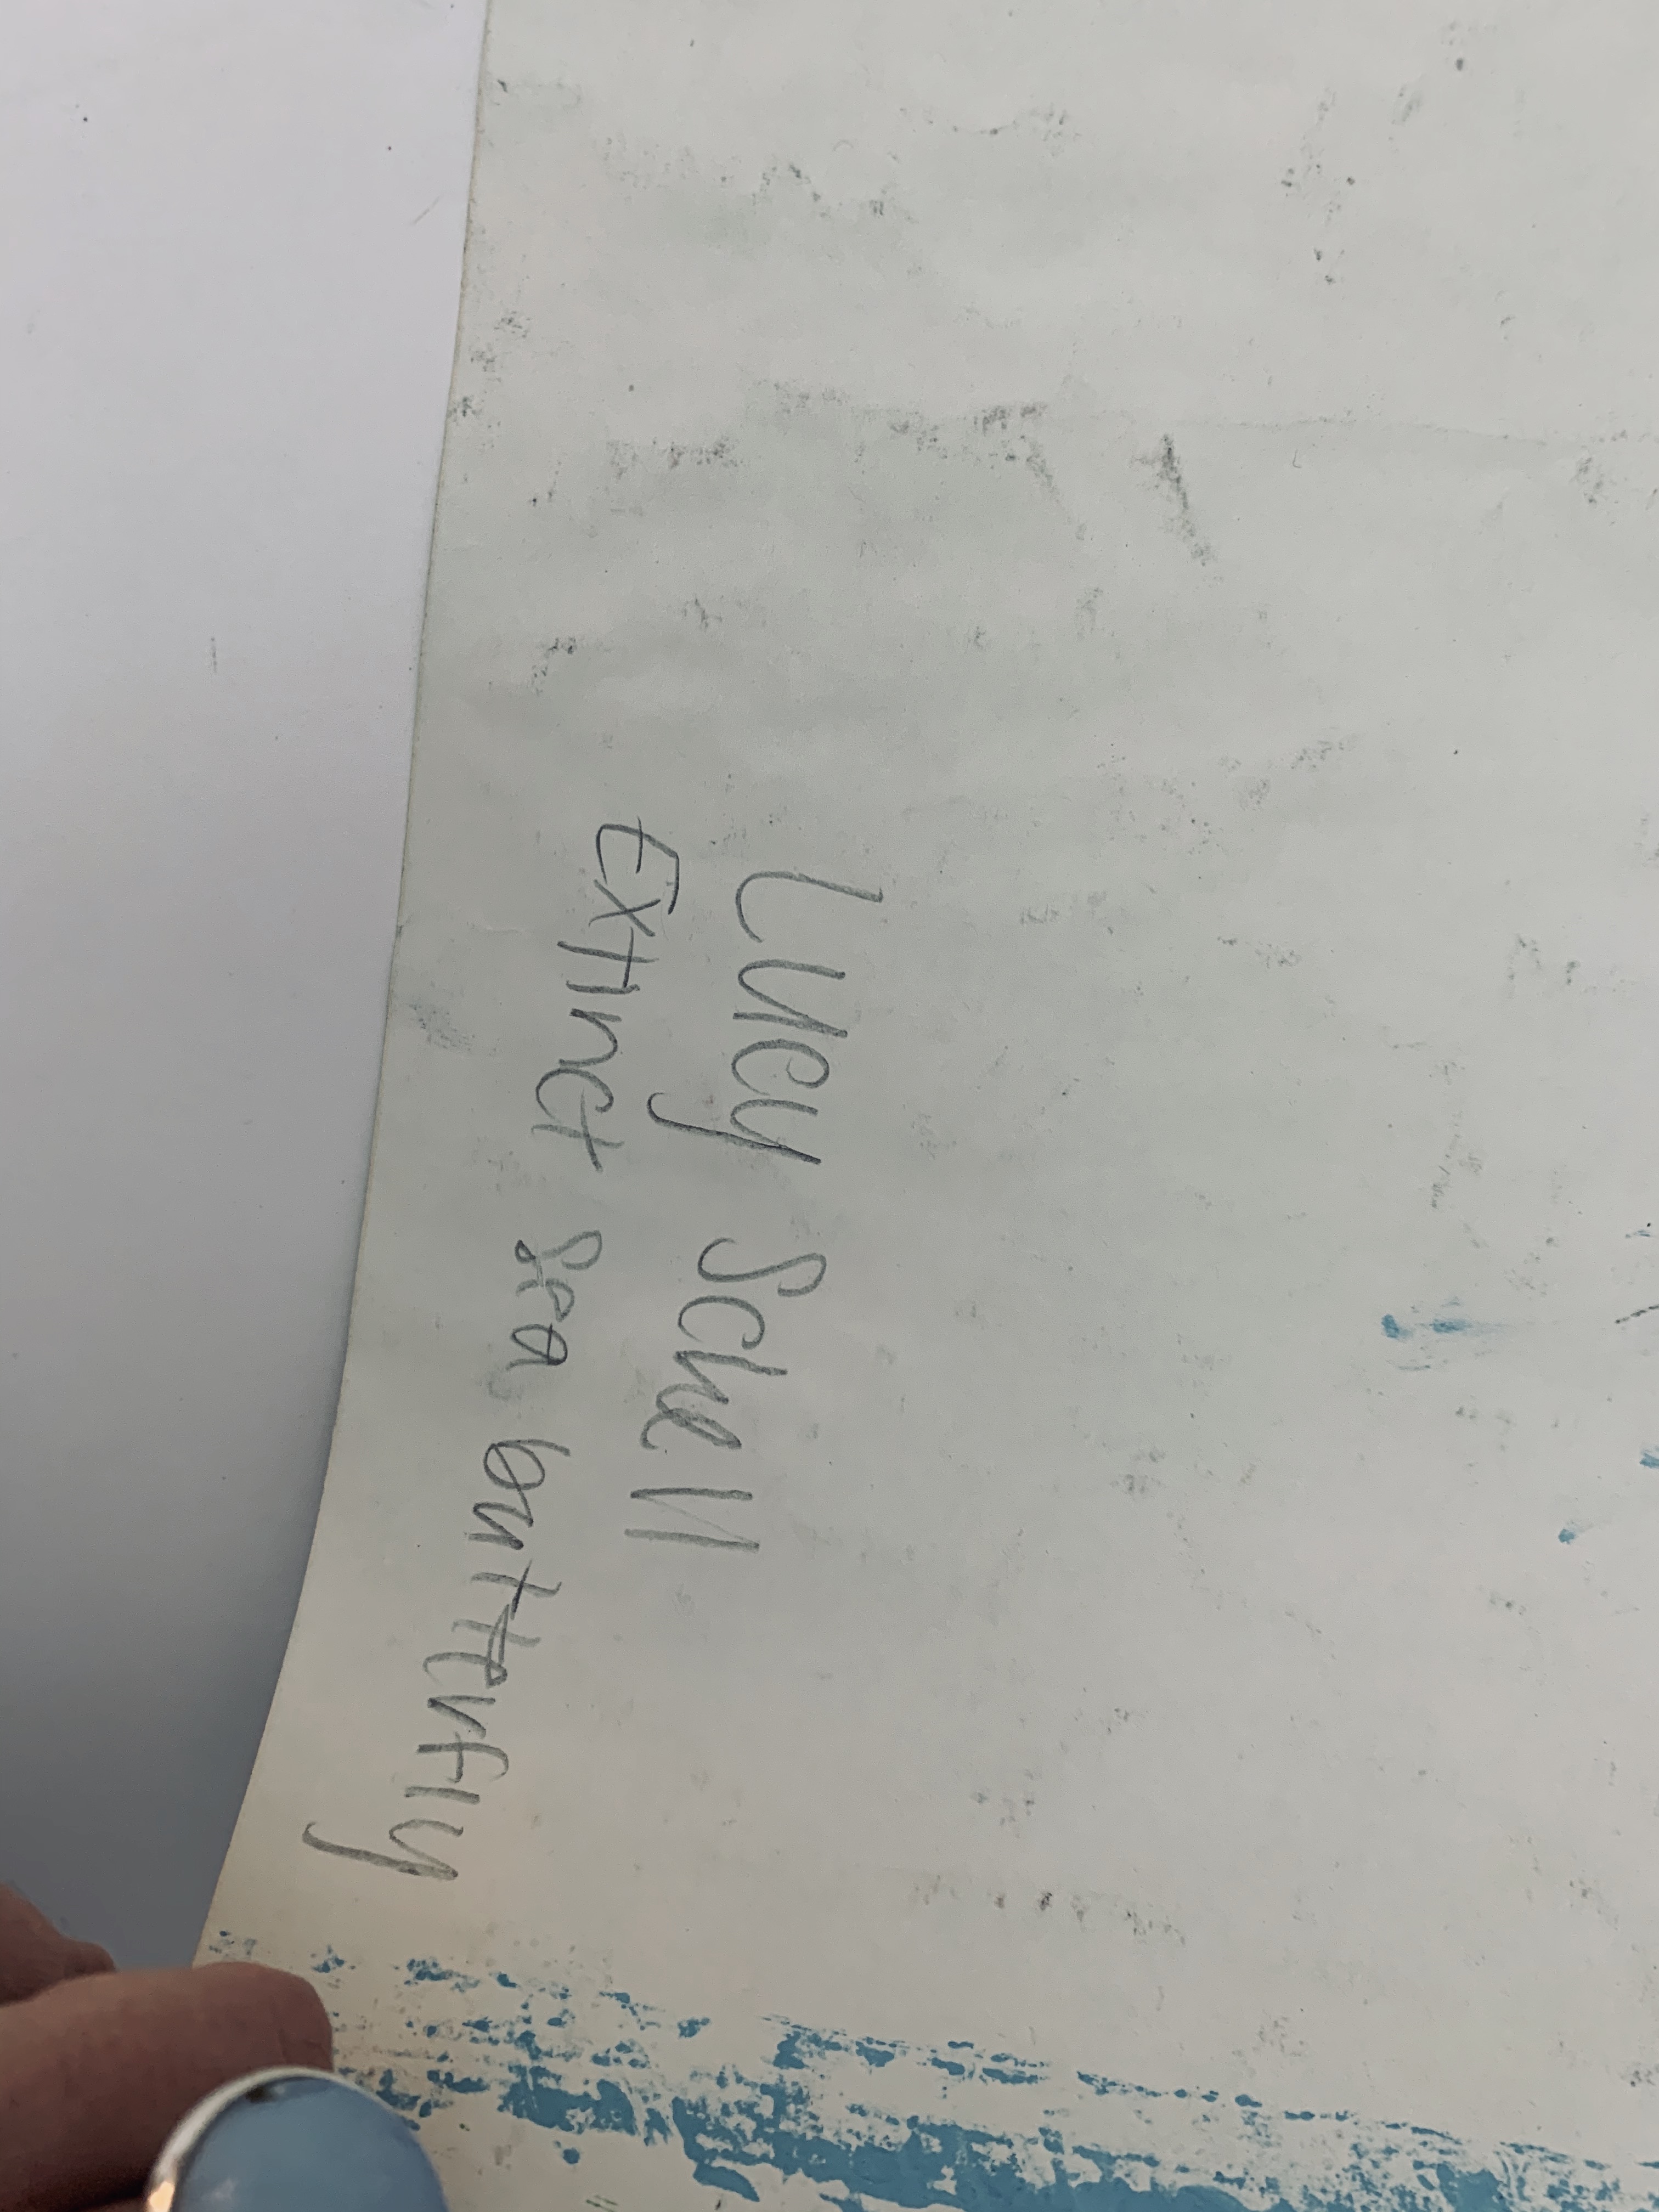 Lucy Schell
Extinct Sea butterfly